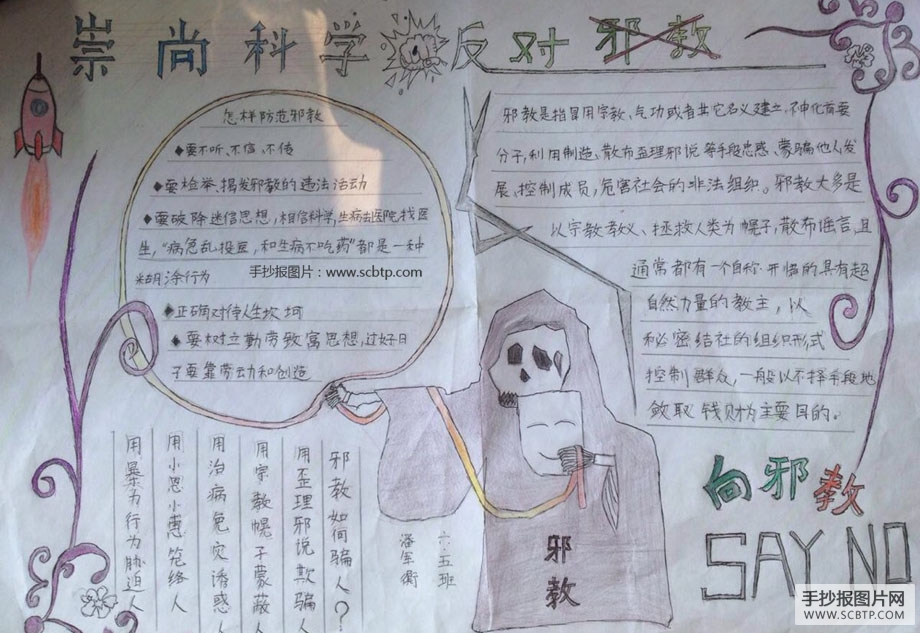 崇尚科学 反对邪教
怎样防范邪教
◆要不听、不信、不传
◆要检举、揭发邪教的违法活动
◆要破除迷信思想,相信科学,生病去医院找医
生,“病急乱投医,和生病不吃药”都是一种
糊涂行为
手抄报图片:www.scbtp.com
◆正确对待人生坎坷
◆要树立勤劳致富思想,过好日
子要靠劳动和创造
邪教是指冒用宗教、气功或者其它名义建立、神化首要
分子,利用制造、散布歪理邪说等手段蛊惑、蒙骗他人发
展、控制成员,危害社会的非法组织。邪教大多是
以宗教教义、拯救人类为幌子,散布谣言,且
通常都有一个自称开悟的具有超
自然力量的教主,以
秘密结社的组织形式
控制群众,一般以不择手段地
敛取钱财为主要目的。
邪教如何骗人?
用歪理邪说欺骗人
用宗教幌子蒙蔽人
用治病免灾诱惑人
用小恩小惠笼络人
用暴力行为胁迫人
六.五班
邪教
向邪教
SAY NO
手抄报图片网
WWW.SCBTP.COM